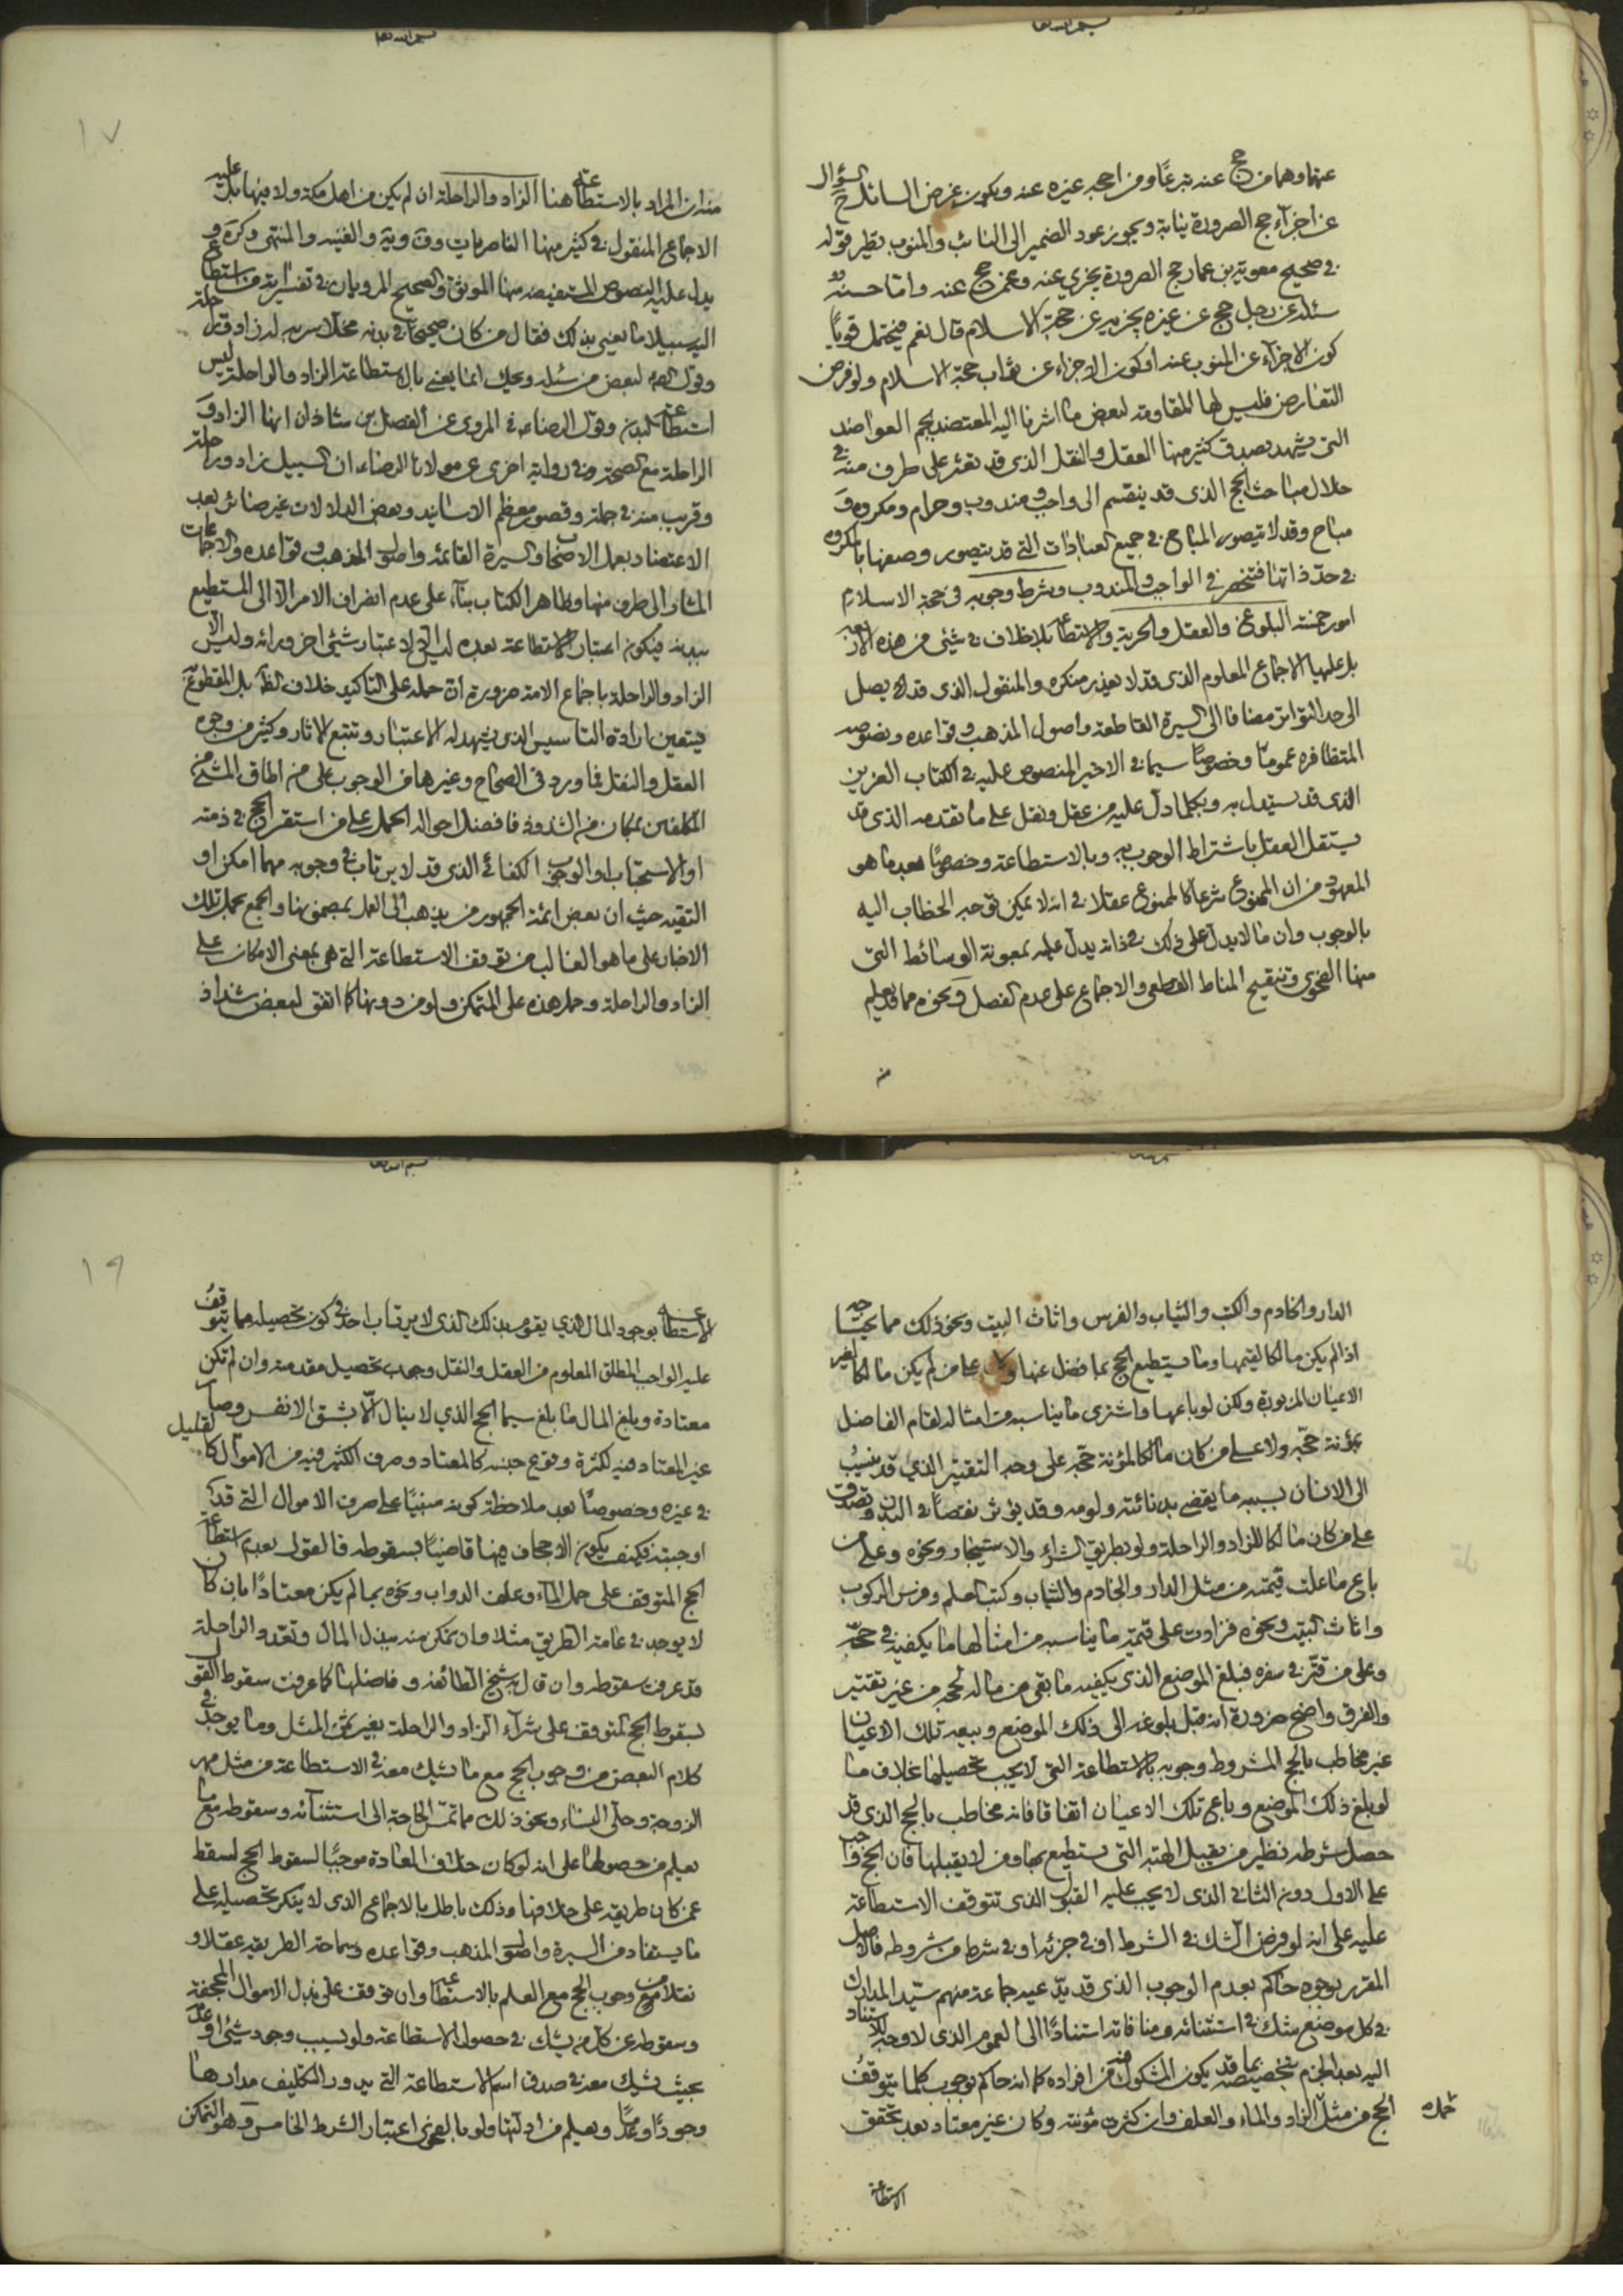 بسم الله تعا
عنها وهما من حج عنه تبرعًا ومن احجه غيره عنه ويكون غرض السائل ح السؤال
عن اجزاء حج الصرورة نيابة ويجوز عود الضمير الى النائب والمنوب نظير قوله
في صحيح معوية بن عمار حج الصرورة يجزي عنه وعمن حج عنه واما حسنته
سئله عن رجل حج عن غيره يجزيه عن حجة الاسلام قال نعم فيحتمل قويًا
كون الاجزاء عن المنوب عنه او كون الاجزاء عن ثواب حجة الاسلام ولو فرض
التعارض فليس لها المقاومة لبعض ما اشرنا اليه المعتضد بجم العواضد
التي يشهد بصدق كثير منها العقل والنقل الذي قد تعثر على طرف منه في
خلال مباحث الحج الذي قد ينقسم الى واجب ومندوب وحرام ومكروه و
مباح وقد لا يتصور المباح في جميع العبادات التي قد يتصور وصفها بالمكروه
في حد ذاتها فتنحصر في الواجب والمندوب وشرط وجوبه في حجة الاسلام
امور خمسة البلوغ والعقل والحرية والاستطاعة بلا خلاف في شيء من هذه الاربعة
بل عليها الاجماع المعلوم الذي قد لا يعذر منكره والمنقول الذي قد يصل
الى حد التواتر مضافا الى السيرة القاطعة واصول المذهب وقواعده ونصوصه
المتظافرة عمومًا وخصوصًا سيما في الاخير المنصوص عليه في الكتاب العزيز
الذي قد يستدل به وبكلما دل عليه من عقل ونقل على ما تقدمه الذي قد
يستقل العقل باشتراط الوجوب به وبالاستطاعة وخصوصًا بعد ما هو
المعهود من ان الممنوع شرعًا كالممنوع عقلا في انه لا يمكن توجه الخطاب اليه
بالوجوب وان ما لا يدل على ذلك في ذاته يدل عليه بمعونة الوسائط التي
منها الفحوى وتنقيح المناط القطعي والاجماع على عدم الفصل ونحوه مما قد يعلم
منه
بسم الله تعا
١٧
منه ان المراد بالاستطاعة هنا الزاد والراحلة ان لم يكن من اهل مكة ولا منها بل عليه
الاجماع المنقول في كثير منها الناصريات وف وية والغنية والمنتهى وكرة و
يدل عليه النصوص المستفيضة منها الموثق والصحيح المرويان في تفسير اية من استطاع
اليه سبيلا ما يعني بذلك فقال من كان صحيحًا في بدنه مخلا سربه له زاد وراحلة
وقول الص لبعض من سئله ويحك انما يعني بالاستطاعة الزاد والراحلة ليس
استطاعة البدن وقول الرضا ع في المروي عن الفضل بن شاذان انها الزاد و
الراحلة مع الصحة وفي رواية اخرى عن مولانا الرضا ع ان السبيل زاد وراحلة
وقريب منه في جملة وقصور معظم الاسانيد وبعض الدلالات غير ضائر بعد
الاعتضاد بعمل الاصحاب والسيرة القائمة واصول المذهب وقواعده والاجماعات
المشار الى طرف منها وظاهر الكتاب بناء على عدم انصراف الامر الا الى المستطيع
ببدنه فيكون اعتبار الاستطاعة بعده ليس الا لاعتبار شيء اخر ورائه وليس الا
الزاد والراحلة باجماع الامة ضرورة ان حمله على التاكيد خلاف الظ بل المقطوع
فيتعين ارادة التاسيس الذي يشهد له الاعتبار وتتبع الاثار وكثير من وجوه
العقل والنقل فما ورد في الصحاح وغيرها من الوجوب على من اطاق المشي من
المكلفين بمكان من الشذوذ فافضل احواله الحمل على من استقر الحج في ذمته
او الاستحباب او الوجوب الكفائي الذي قد لا يرتاب في وجوبه مهما امكن او
التقية حيث ان بعض ائمة الجمهور من يذهب الى العمل بمضمونها والجمع بحمل تلك
الاخبار على ما هو الغالب من توقف الاستطاعة التي هي بمعنى الامكان على
الزاد والراحلة وحمل هذه على المتمكن ولو من دونها كما اتفق لبعض شذاذ
الدار والخادم والكتب والثياب والفرس واثاث البيت ونحو ذلك مما يحتاجه
اذا لم يكن مالكا لقيمتها وما يستطيع الحج بما فضل عنها ولا على من لم يكن مالكا لغير
الاعيان المزبورة ولكن لو باعها واشترى ما يناسبه من امثاله لقام الفاضل
بمؤنة حجه ولا على من كان مالكا لمؤنة حجه على وجه التقتير الذي قد ينسب
الى الانسان بسببه ما يقضي بدنائته ولومه وقد يؤثر نقصًا في البدن وتصدق
على من كان مالكا للزاد والراحلة ولو بطريق الشراء والاستيجار ونحوه وعلى من
باع ما غلت قيمته من مثل الدار والخادم والثياب وكتب العلم وفرس الركوب
واثاث البيت ونحوه فزادت على قيمة ما يناسبه من امثالها ما يكفيه في حجه
وعلى من قتر في سفره فبلغ الموضع الذي يكفيه ما بقي من ماله لحجه من غير تقتير
والفرق واضح ضرورة انه قبل بلوغه الى ذلك الموضع وبيعه تلك الاعيان
غير مخاطب بالحج المشروط وجوبه بالاستطاعة التي لا يجب تحصيلها بخلاف ما
لو بلغ ذلك الموضع وباع تلك الاعيان اتفاقا فانه مخاطب بالحج الذي قد
حصل شرطه نظير من يقبل الهبة التي يستطيع بها ومن لا يقبلها فان الحج واجب
على الاول دون الثاني الذي لا يجب عليه القبول الذي تتوقف الاستطاعة
عليه على انه لو فرض الشك في الشرط او في جزئه او في شرط من شروطه فالاصل
المقرر بوجوه حاكم بعدم الوجوب الذي قد يدعيه جماعة منهم سيد المدارك
في كل موضع شك في استثنائه ومنافاته استنادًا الى العموم الذي لا وجه للاستناد
اليه بعد الجزم بتخصيصه بما قد يكون المشكوك فيه من افراده كما انه حاكم بوجوب كلما يتوقف
الحج من مثل الزاد والماء والعلف وان كثرت مؤنته وكان غير معتاد بعد تحقق
الاستطاعة
بسم الله تعا
١٩
الاستطاعة بوجود المال الذي يقوم بذلك الذي لا يرتاب احد في كون تحصيله مما يتوقف
عليه الواجب المطلق المعلوم من العقل والنقل وجوب تحصيل مقدمته وان لم تكن
معتادة وبلغ المال ما بلغ سيما الحج الذي لا ينال الا بشق الانفس وصار
غير المعتاد فيه لكثرة وقوع جنسه كالمعتاد وصرف الكثير فيه من الاموال كالقليل
في غيره وخصوصًا بعد ملاحظة كونه مبنيًا على صرف الاموال التي قد
اوجبته فكيف يكون الاجحاف فيها قاضيًا بسقوطه فالقول بعدم استطاعة
الحج المتوقف على حمل الماء وعلف الدواب ونحوه بما لم يكن معتادًا بان كان
لا يوجد في عامة الطريق مثلا وان تمكن منه ببذل المال وتعدد الراحلة
قد عرفت سقوطه وان قال به شيخ الطائفة وفاضلها كما عرفت سقوط القول
بسقوط الحج المتوقف على شراء الزاد والراحلة بغير ثمن المثل وما يوجد في
كلام البعض من وجوب الحج مع ما يشك معه في الاستطاعة من مثل مهر
الزوجة وحلي النساء ونحو ذلك مما تمس الحاجة الى استثنائه وسقوطه مع ما
يعلم من حصولها على انه لو كان خلاف العادة موجبًا لسقوط الحج لسقط
عمن كان طريقه على خلافها وذلك باطل بالاجماع الذي لا ينكر تحصيله على
ما يستفاد من السيرة واصول المذهب وقواعده وسماحة الطريقة عقلا و
نقلا من وجوب الحج مع العلم بالاستطاعة وان توقف على بذل الاموال المجحفة
وسقوطه عن كل من يشك في حصول الاستطاعة ولو بسبب وجود شيء او عدمه
بحيث يشك معه في صدق اسم الاستطاعة التي يدور التكليف مدارها
وجودًا وعدمًا ويعلم من ادلتها ولو بالفحوى اعتبار الشرط الخامس وهو التمكن